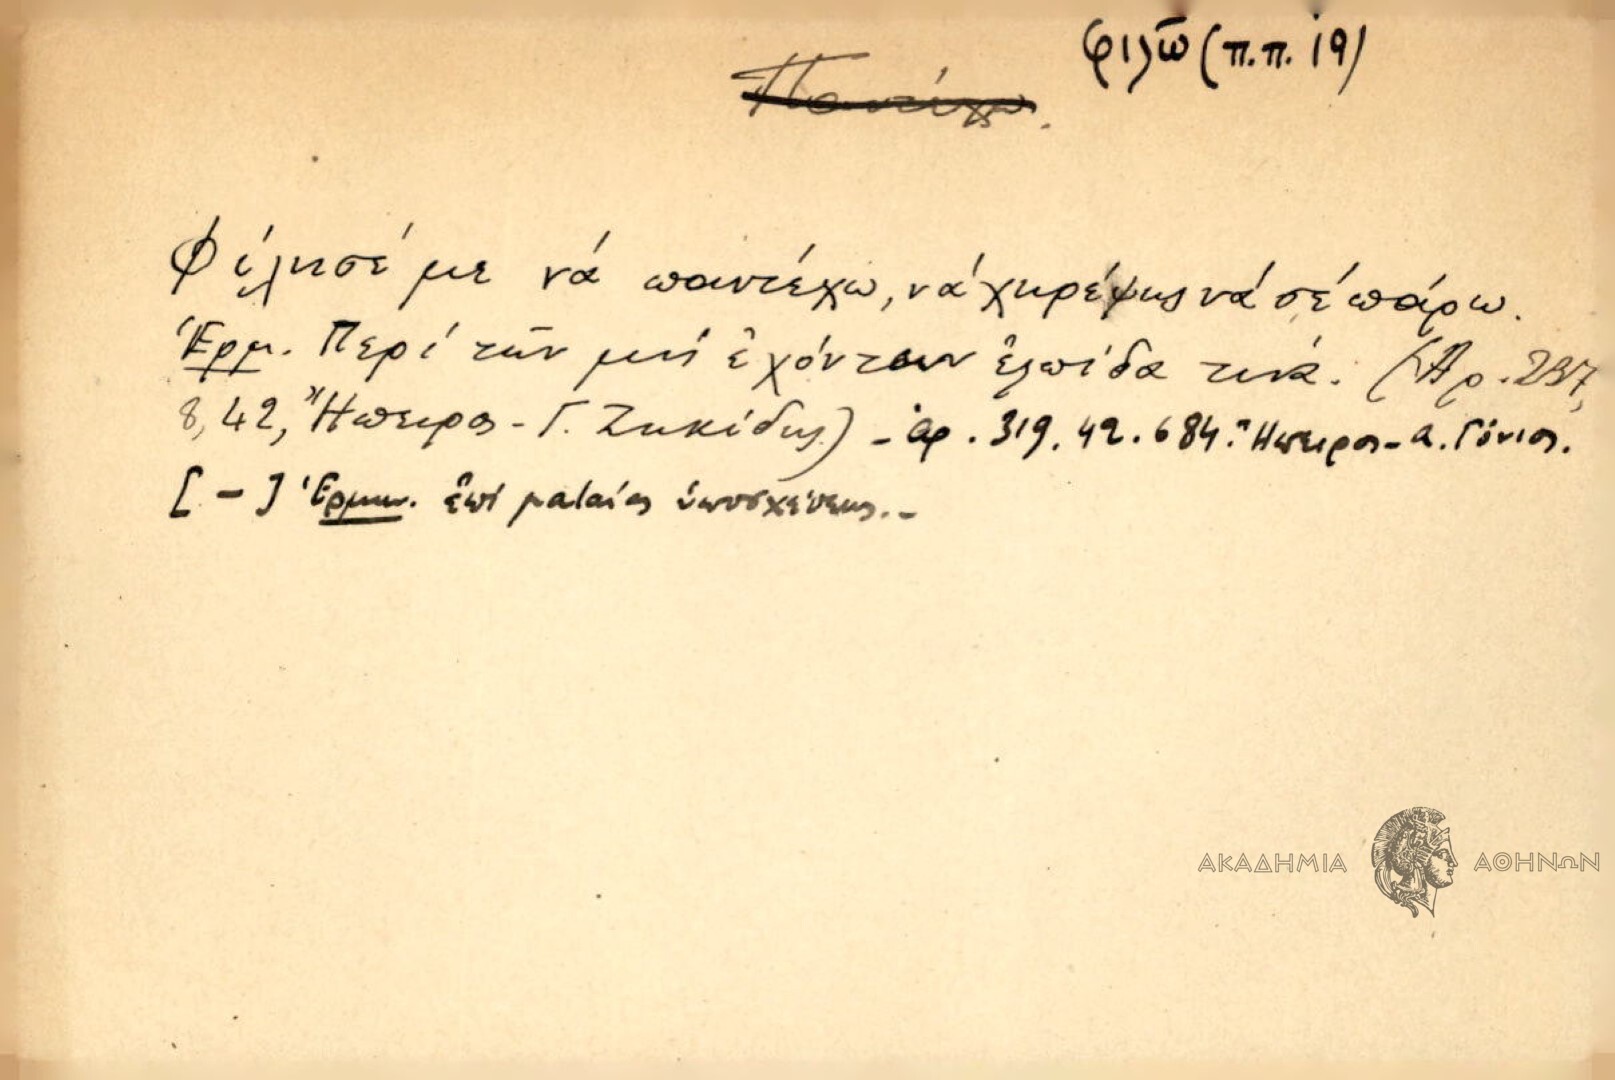 φιλῶ (π.π. 19)
Παντέχω.
Φίλησέ με νά παντέχω, νά χηρέψῃς νά σέ πάρω.
Ἑρμ. Περί τῶν μή ἐχόντων ἐλπίδα τινά. (Ἀρ. 237,
8,42, Ἤπειρος - Γ. Ζηκίδης) - ἀρ. 319. 42. 684. Ἤπειρος - Α. Γόνιος.
[-] Ἑρμην. ἐπί ματαίας ὑποσχέσεως.-
ΑΚΑΔΗΜΙΑ ΑΘΗΝΩΝ